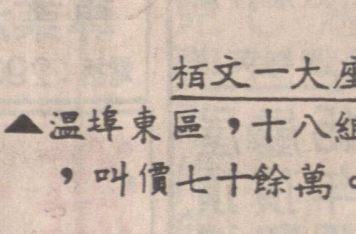 栢文一大座
▲溫埠東區，十八組
，叫價七十餘萬。